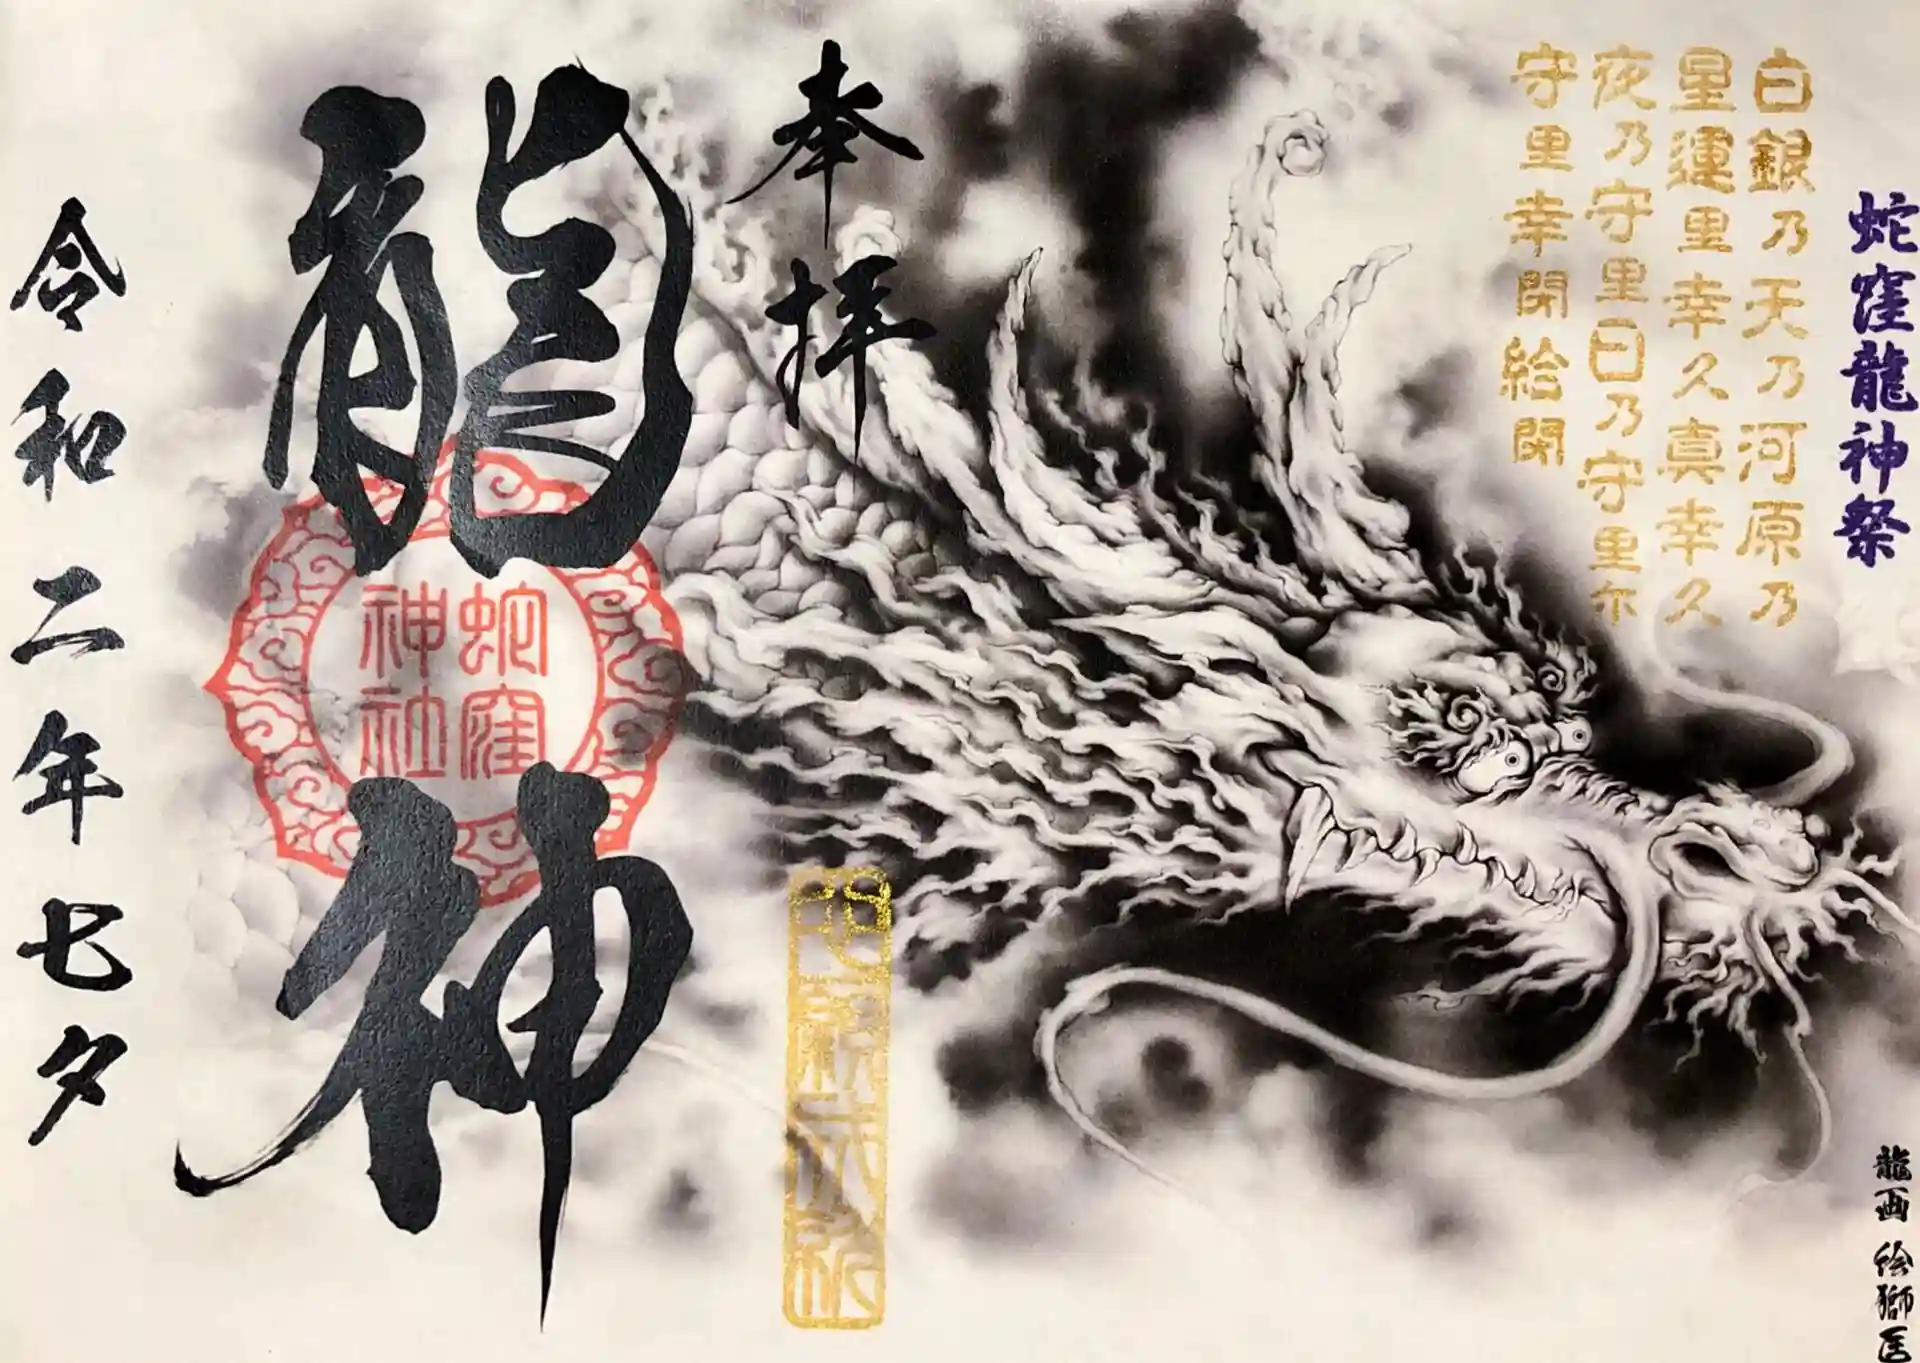 蛇窪龍神祭
白銀乃天乃河原乃
星運里幸久真幸久
夜乃守里日乃守里尓
守里幸閇給閇
奉拝
龍神
蛇窪
神社
令和二年七夕
龍画 絵獅